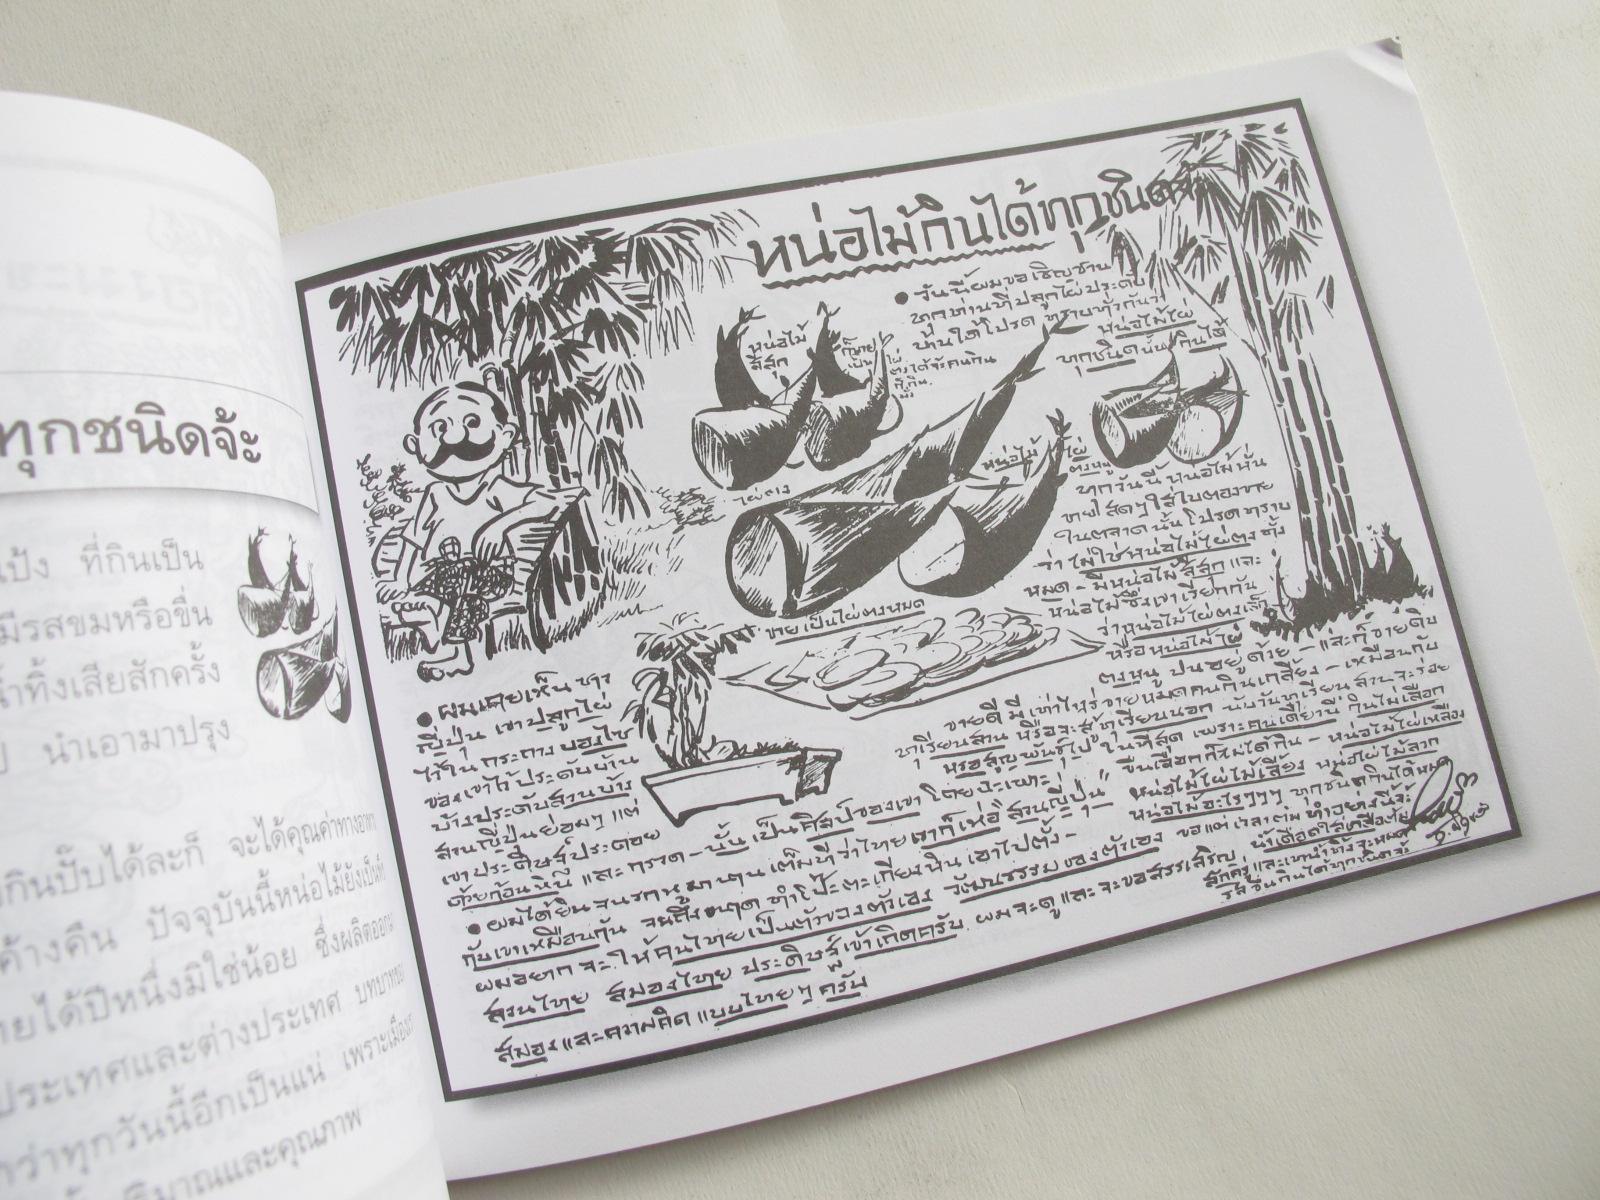 ทุกชนิดจ้ะ
แป้ง ที่กินเป็น
มีรสขมหรือขื่น
น้ำทิ้งเสียสักครั้ง
นำเอามาปรุง
กินปั๊บได้ละก็ จะได้คุณค่าทางอาหาร
ค้างคืน ปัจจุบันนี้หน่อไม้ยังเป็นที่
ายได้ปีหนึ่งมิใช่น้อย ซึ่งผลิตออก
ประเทศและต่างประเทศ บทบาทของ
กว่าทุกวันนี้อีกเป็นแน่ เพราะเมือง
ปริมาณและคุณภาพ
หน่อไม้กินได้ทุกชนิด
• วันนี้ผมขอเชิญชวน
ทุกท่านที่ปลูกไผ่ประดับ
บ้านได้โปรด ทราบทั่วกันว่า
หน่อไม้ไผ่
ทุกชนิดนั้นกินได้
หน่อไม้
สีสุก
ก็ขาย
เป็น
ไผ่
ตงได้จ้ะคนกิน
ก็กิน
หน่อไม้ไผ่
ตงหนู
ไผ่ตง
ขายเป็นไผ่ตงหมด
ทุกวันนี้หน่อไม้นั้น
ขายสดๆใส่ใบตองขาย
ในตลาดนั้นโปรดทราบ
ว่าไม่ใช่หน่อไม้ไผ่ตงทั้ง
หมด - มีหน่อไม้สีสุกและ
หน่อไม้ซึ่งเขาเรียกกัน
ว่าหน่อไม้ไผ่ตงเล็ก
หรือหน่อไม้ไผ่
ตงหนู ปนอยู่ด้วย - และก็ขายดิบ
ขายดีมีเท่าไหร่ขายหมดคนกินเกลี้ยง - เหมือนกับ
ทุเรียนสวนหรือจะสู้ทุเรียนนอก นับวันทุเรียนสวนจะร่อย
หรอสูญพันธุ์ไปในที่สุด เพราะคนเดี๋ยวนี้กินไม่เลือก
ขืนเลือกก็ไม่ได้กิน - หน่อไม้ไผ่เหลือง
หน่อไม้ไผ่ไม้เลี้ยง หน่อไผ่ไม้ลวก
หน่อไม้อะไรๆๆๆ ทุกชนิดกินได้หมด
ขอแต่เวลาต้ม ทำอย่างนี้จ้ะ
น้ำเดือดใส่เกลือต้ม
สักครู่และเทน้ำทิ้งจะหมด
รสขื่นกินได้ทุกชนิดจ้ะ
• ผมเคยเห็นชาว
ญี่ปุ่น เขาปลูกไผ่
ไว้ในกระถางบอนไซ
ของเขาไว้ประดับบ้าน
บ้างประดับสวนบ้าง
สวนญี่ปุ่นย่อมๆแต่
เขาประดิษฐ์ประดอย
ด้วยก้อนหินและกรวด - นั้นเป็นศิลปของเขาโดยเฉพาะ
• ผมได้ยินจนรกหูมานานเต็มที่ว่าไทยเราก็เห่อ"สวนญี่ปุ่น"
กับเขาเหมือนกัน จนถึงขนาดทำโป๊ะตะเกียงหินเอาไปตั้ง -
ผมอยากจะให้คนไทยเป็นตัวของตัวเอง วัฒนธรรมของตัวเอง
สวนไทย สมองไทย ประดิษฐ์เข้าเถิดครับ ผมจะดูและจะขอสรรเสริญ
สมองและความคิดแบบไทยๆครับ